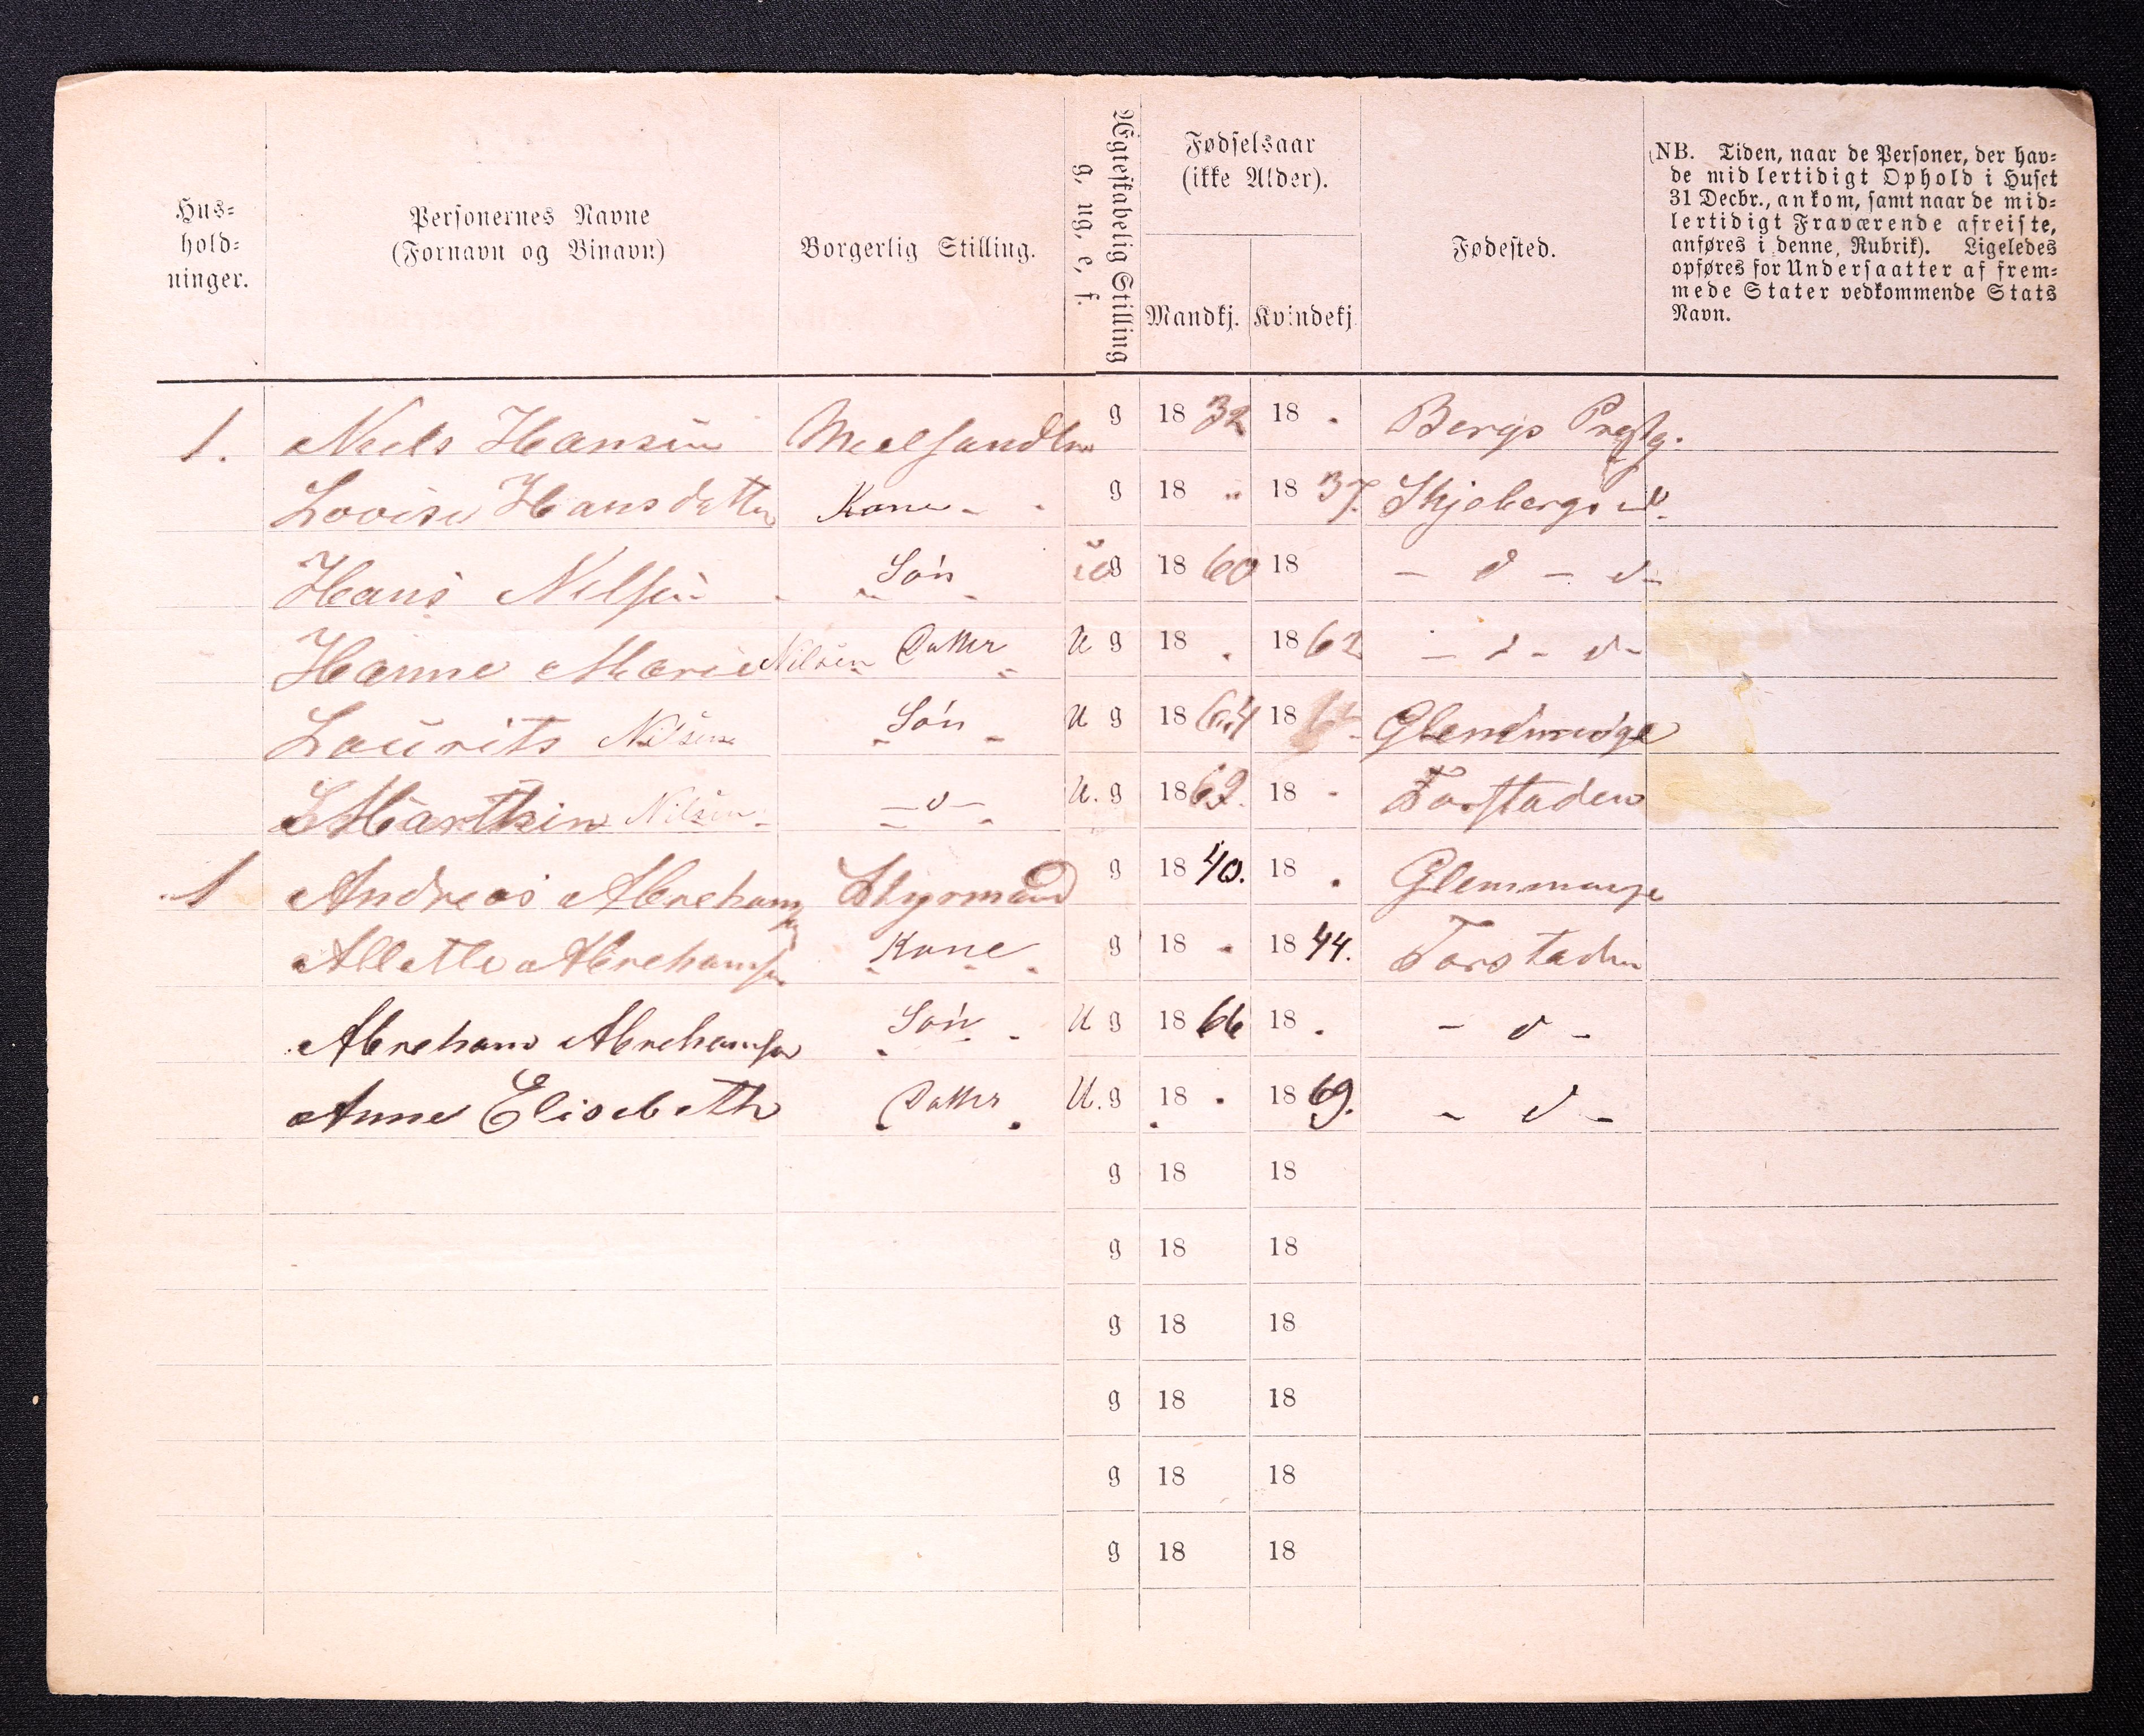 Hus-
hold-
ninger.
Personernes Navne
(Fornavn og Binavn)
Borgerlig Stilling.
Ægteskabelig Stilling
g, ug, e, f.
Fødselsaar
(ikke Alder).
Mandkj. Kvindekj
Fødested.
(NB. Tiden, naar de Personer, der hav-
de midlertidigt Ophold i Huset
31 Decbr., ankom, samt naar de mid-
lertidigt Fraværende afreiste,
anføres i denne Rubrik). Ligeledes
opføres for Undersaatter af frem-
mede Stater vedkommende Stats
Navn.
1. Niels Hansen g 18 32 18 Bergs Prestg.
Lovise Hansdatter Kone g 18 " 18 37. Skjebergs
Hans Nilsen Søn u g 18 60 18 - d - d -
Hanne Marie Nilsen Datter U g 18 18 62 - d - d -
Laurits Nilsen Søn U g 18 64 18
Marthin Nilsen - d - U. g 18 69. 18 Forstaden
1 Andreas Abrehamsen Styrmand g 18 40. 18 Glemminge
Allette Abrehamsen Kone g 18 18 44. Forstaden
Abreham Abrehamsen Søn U g 18 66 18 - d -
Anne Elisebeth Datter U. g 18 18 69. - d -
g 18 18
g 18 18
g 18 18
g 18 18
g 18 18
g 18 18